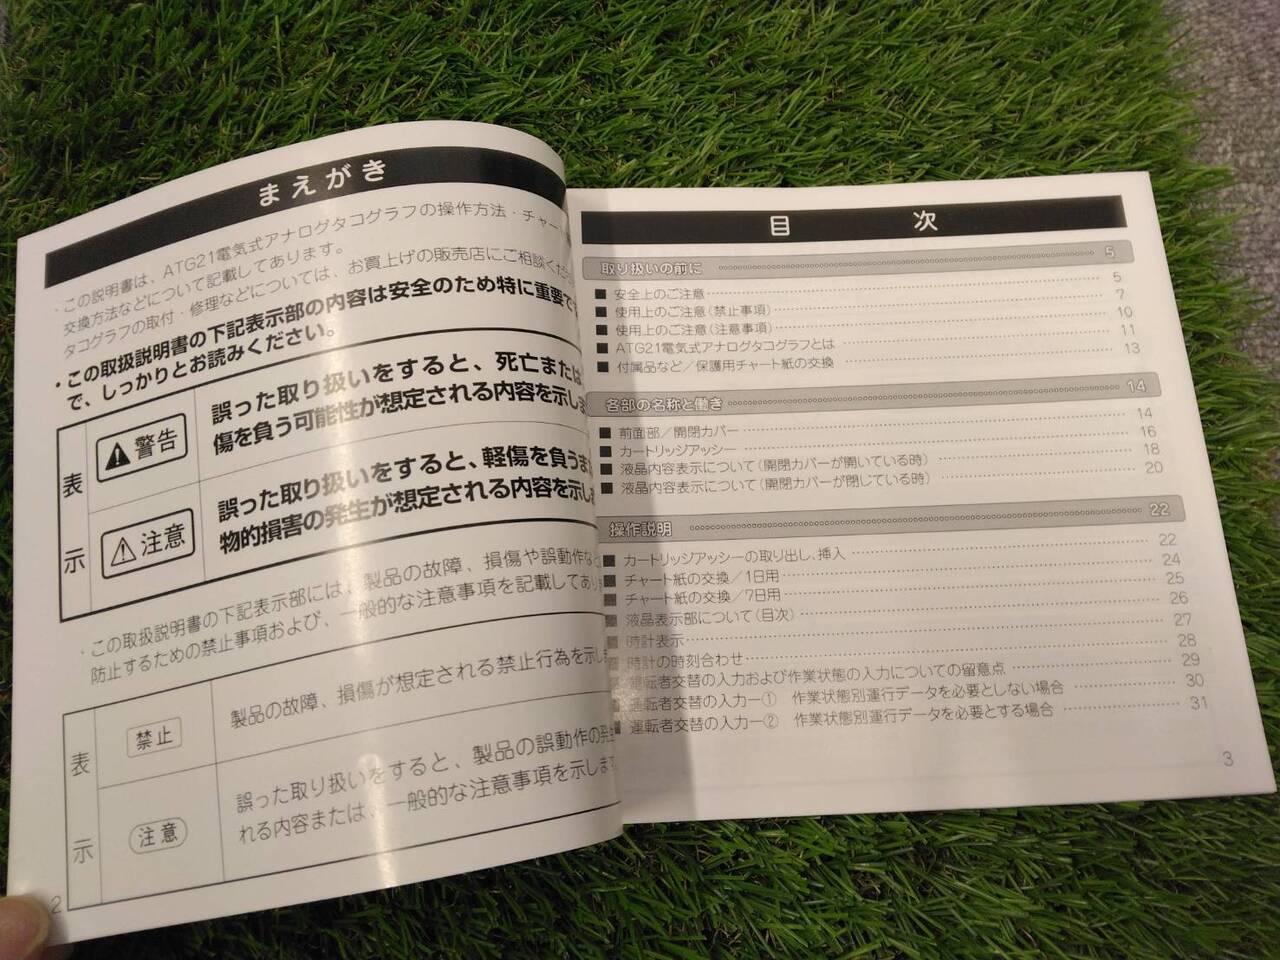 まえがき
・この説明書は、ATG21電気式アナログタコグラフの操作方法・チャート
交換方法などについて記載してあります。
タコグラフの取付・修理などについては、お買上げの販売店にご相談くだ
・この取扱説明書の下記表示部の内容は安全のため特に重要で
で、しっかりとお読みください。
表示
警告
誤った取り扱いをすると、死亡または
傷を負う可能性が想定される内容を示し
注意
誤った取り扱いをすると、軽傷を負う
物的損害の発生が想定される内容を示し
・この取扱説明書の下記表示部には、製品の故障、損傷や誤動作な
防止するための禁止事項および、一般的な注意事項を記載してあり
表示
禁止
製品の故障、損傷が想定される禁止行為を示し
注意
誤った取り扱いをすると、製品の誤動作の発
れる内容または、一般的な注意事項を示します
2
目次
取り扱いの前に 5
■ 安全上のご注意 5
■ 使用上のご注意(禁止事項) 7
■ 使用上のご注意(注意事項) 10
■ ATG21電気式アナログタコグラフとは 11
■ 付属品など/保護用チャート紙の交換 13
各部の名称と働き 14
■ 前面部/開閉カバー 14
■ カートリッジアッシー 16
■ 液晶内容表示について(開閉カバーが開いている時) 18
■ 液晶内容表示について(開閉カバーが閉じている時) 20
操作説明 22
■ カートリッジアッシーの取り出し、挿入 22
■ チャート紙の交換/1日用 24
■ チャート紙の交換/7日用 25
■ 液晶表示部について(目次) 26
■ 時計表示 27
■ 時計の時刻合わせ 28
■ 運転者交替の入力および作業状態の入力についての留意点 29
■ 運転者交替の入力ー① 作業状態別運行データを必要としない場合 30
■ 運転者交替の入力ー② 作業状態別運行データを必要とする場合 31
3